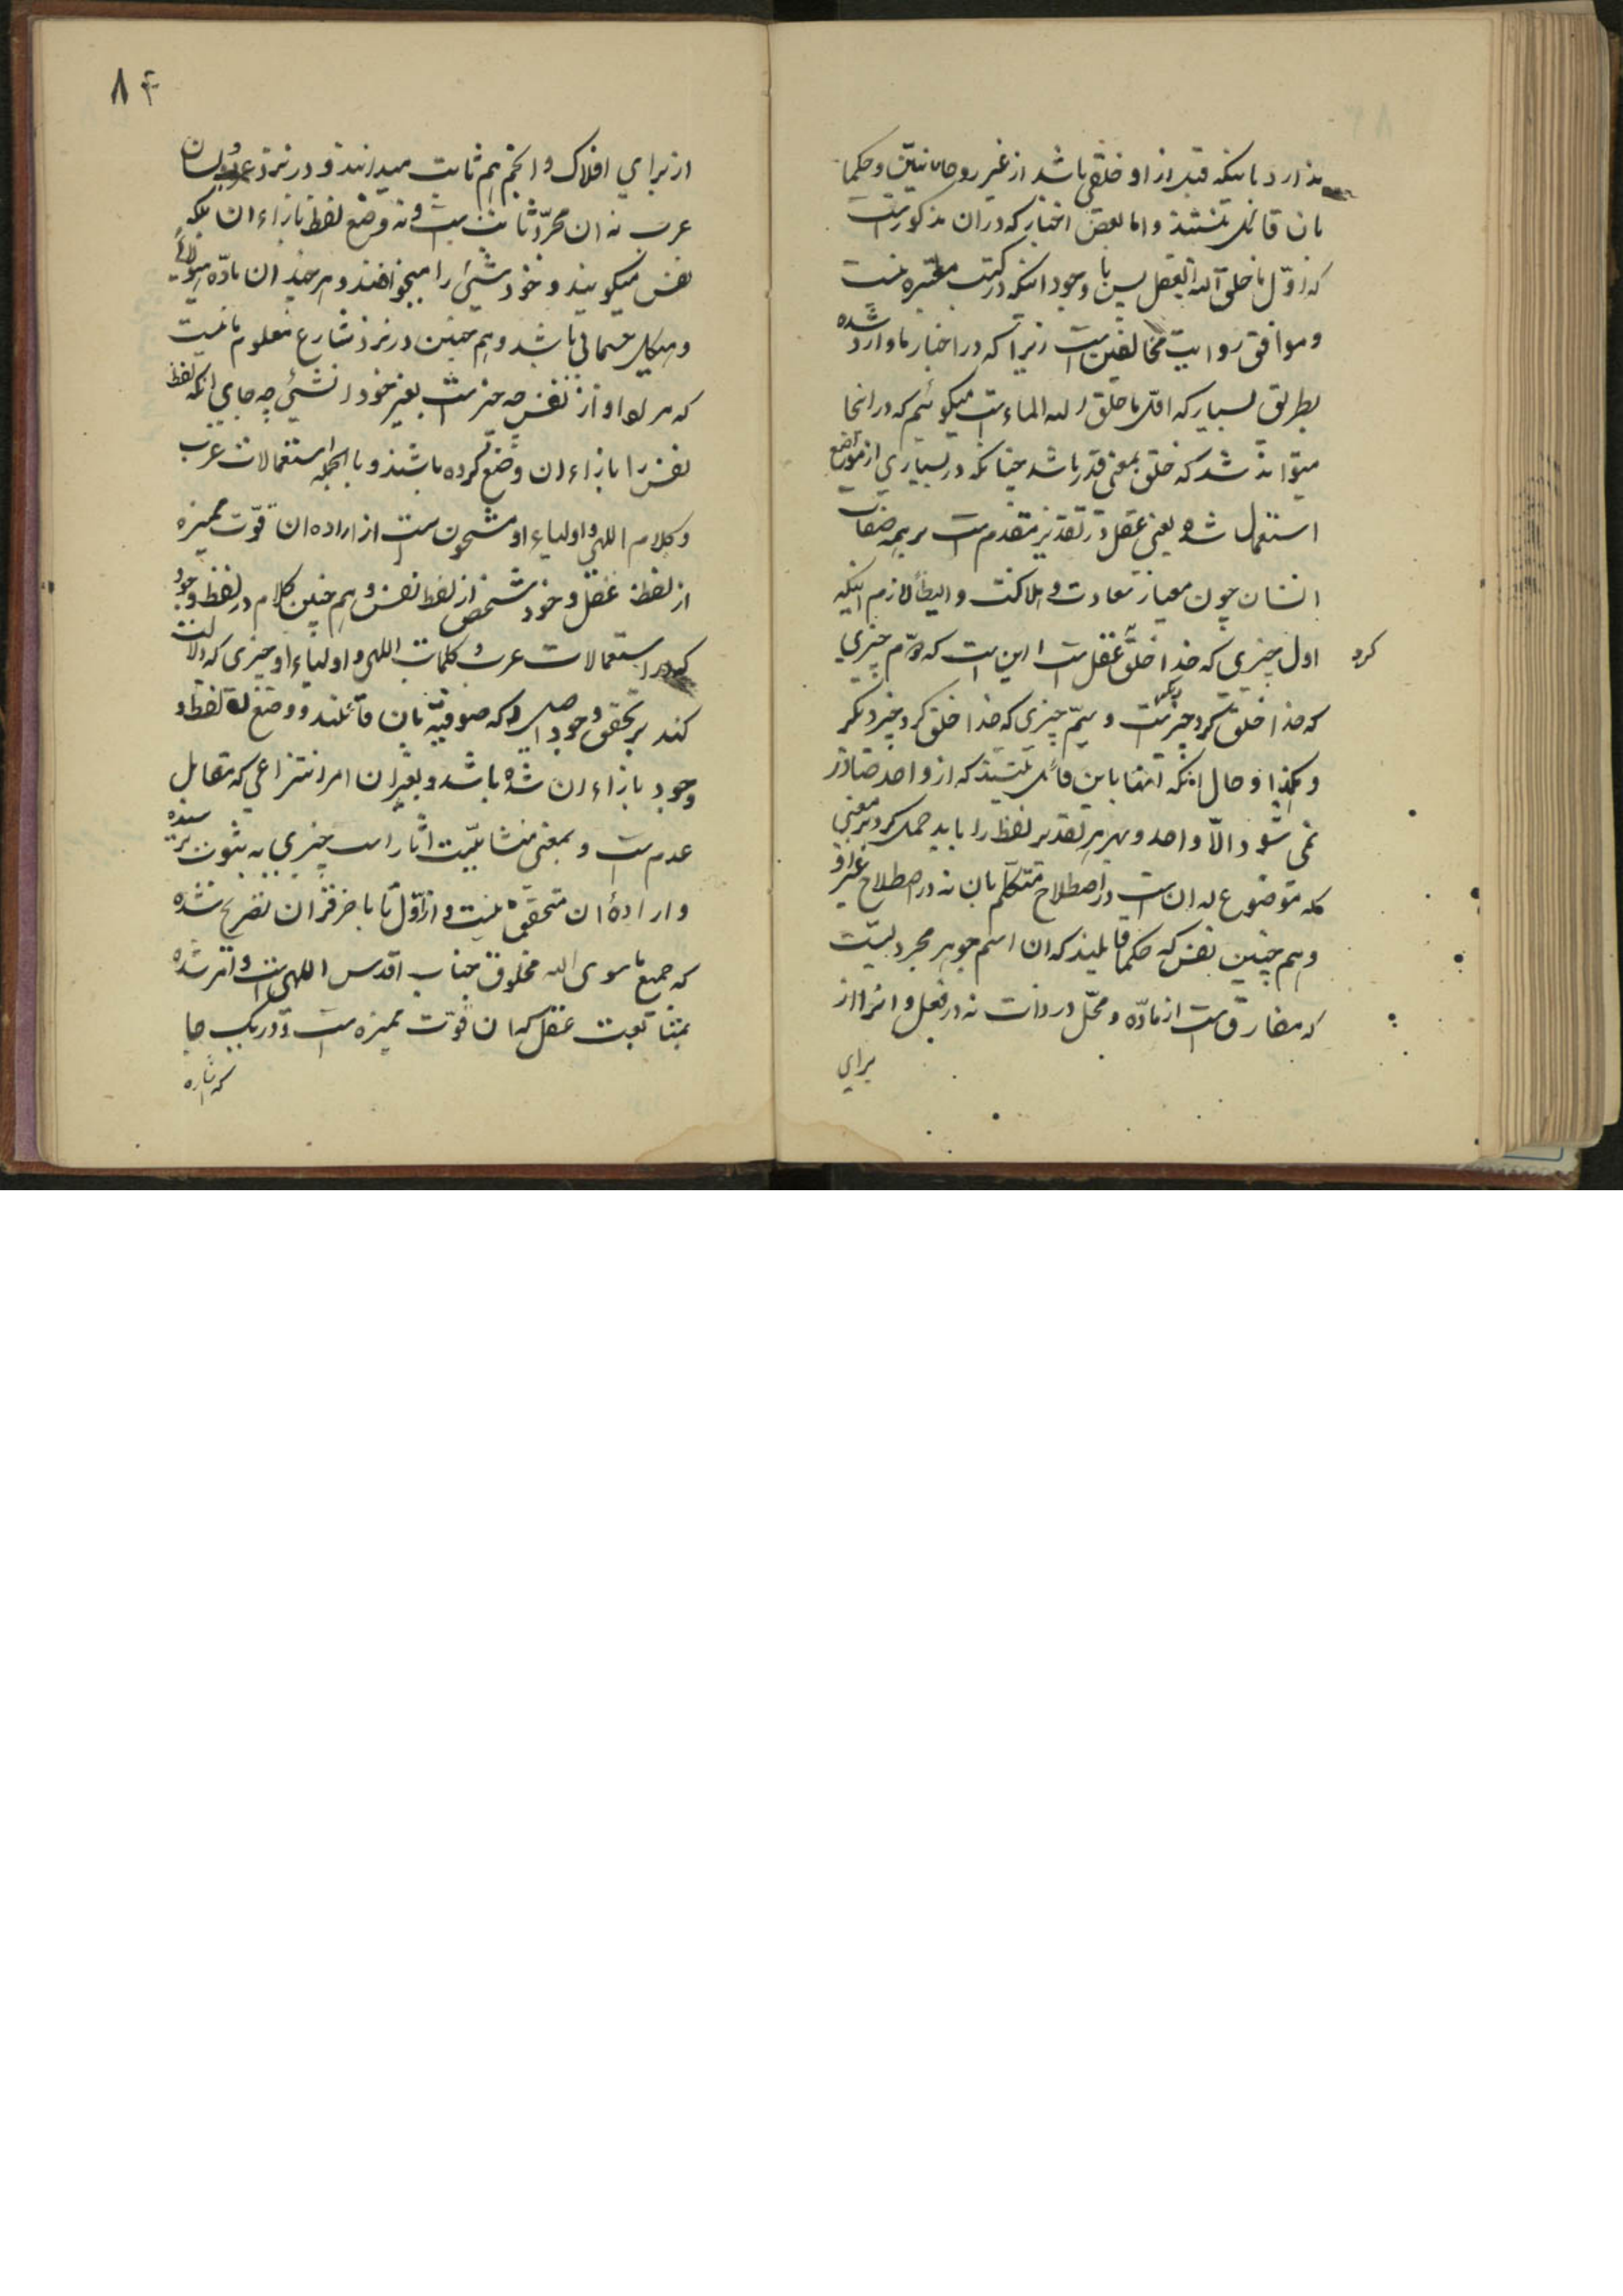 ندارد باینکه قبل از او خلقی باشد از غیر روحانیین و حکما
بان قائل نیستند و اما بعض اخبار که در ان مذکور است
که اوّل ما خلق اللّه العقل پس با وجود اینکه در کتب معتبره نیست
و موافق روایت مخالفین است زیرا که در اخبار ما وارد شده
بطریق بسیار که اوّل ما خلق اللّه الماء است میگوئیم که در انجا
میتواند شد که خلق بمعنی قدر باشد چنانکه در بسیاری از مواضع
استعمال شده یعنی عقل در تقدیر مقدم است بر همه صفات
انسان چون معیار سعادت و هلاکت و ایضاً لازم اینکه
اول چیزی که خدا خلق کرد عقل است این است که دوّم چیزی
که خدا خلق کرد چیز دیگر است و سیّم چیزی که خدا خلق کرد چیز دیگر
و هکذا و حال اینکه انها باین قائل نیستند که از واحد صادر
نمی شود الّا واحد و بهر تقدیر لفظ را باید حمل کرد بر معنی
که موضوع له ان است در اصطلاح متکلّم بان نه در اصطلاح غیر او
و هم چنین نفس که حکما قایلند که ان اسم جوهر مجردیست
که مفارق است از مادّه و محلّ در ذات نه در فعل و انرا از
برای
۸۴
از برای افلاک و انجم هم ثابت میدانند و در نزد و لسان
عرب نه ان مجرّد ثابت است و نه وضع لفظ بازاء ان بلکه
نفس میگویند و خود شیئ را میخواهند و هر چند ان مادّه هیولائی
و هیکل جسمانی باشد و هم چنین در نزد شارع معلوم ما نیست
که مراد او از نفس چه چیز است بغیر خود ان شیئ چه جای انکه لفظ
نفس را بازاء ان وضع کرده باشند و بالجمله استعمالات عرب
و کلام اللهی و اولیاء او مشحون است از اراده ان قوّت ممیزه
از لفظ عقل و خود شخص از لفظ نفس و هم چنین کلام در لفظ وجود
که در استعمالات عرب و کلمات اللهی و اولیاء او چیزی که دلالت
کند بر تحقق وجود اصلی که صوفیّه بان قائلند و وضع لفظ
وجود بازاء ان شده باشد و بغیر ان امر انتزاعی که مقابل
عدم است و بمعنی منشائیّت اثار است چیزی به ثبوت نرسیده
و اراده ان متحقق نیست و از اوّل تا باخر قران تصریح شده
که جمیع ما سوی اللّه مخلوق جناب اقدس اللهی است و امر شده
بمتابعت عقل که ان قوّت ممیزه است و در یک جا
که اشاره